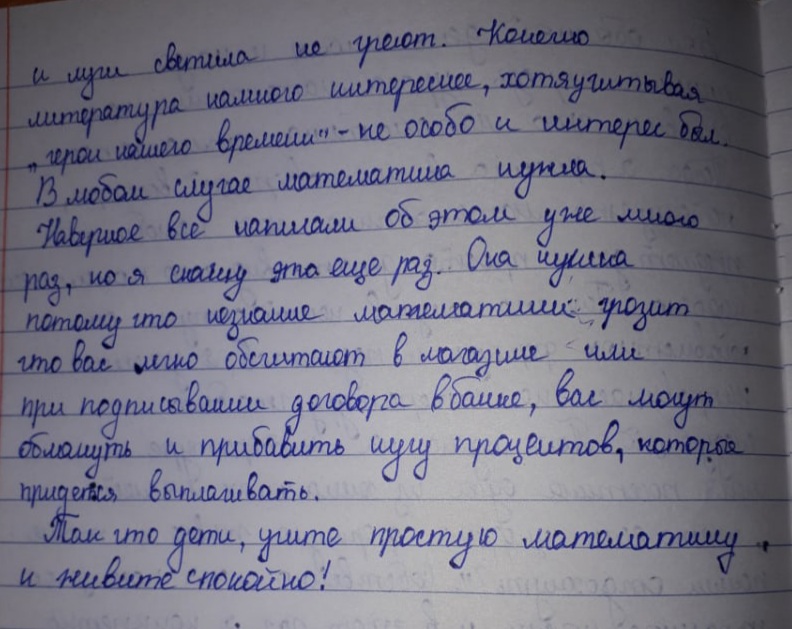 и лучи светила не греют. Конечно
литература намного интереснее, хотя учитывая
„герои нашего времени" - не особо и интерес был.
В любом случае математика нужна.
Наверное все написали об этом уже много
раз, но я скажу это еще раз. Она нужна
потому что незнание математики грозит
что вас легко обсчитают в магазине или
при подписывании договора в банке, вас могут
обмануть и прибавить кучу процентов, которые
придется выплачивать.
Так что дети, учите простую математику
и живите спокойно!